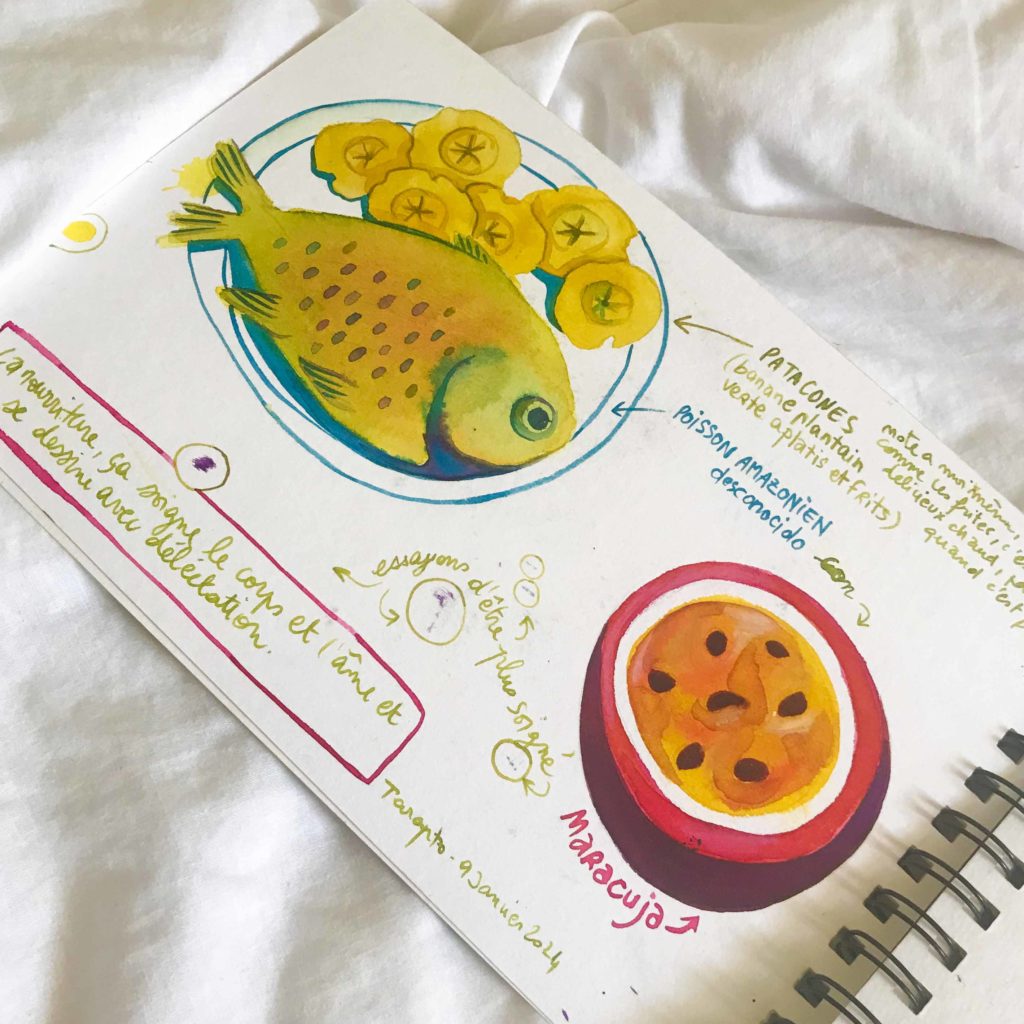 PATACONES
(banane plantain
verte aplatis et frits)
comme les frites, c'e
délicieux chaud,
quand c'est
POISSON AMAZONIEN
desconocido
La nourriture, ça soigne le corps et l'âme et
se dessine avec délectation.
essayons d'être plus soigné
MaRacuja
Tarapoto - 9 Janvier 2024